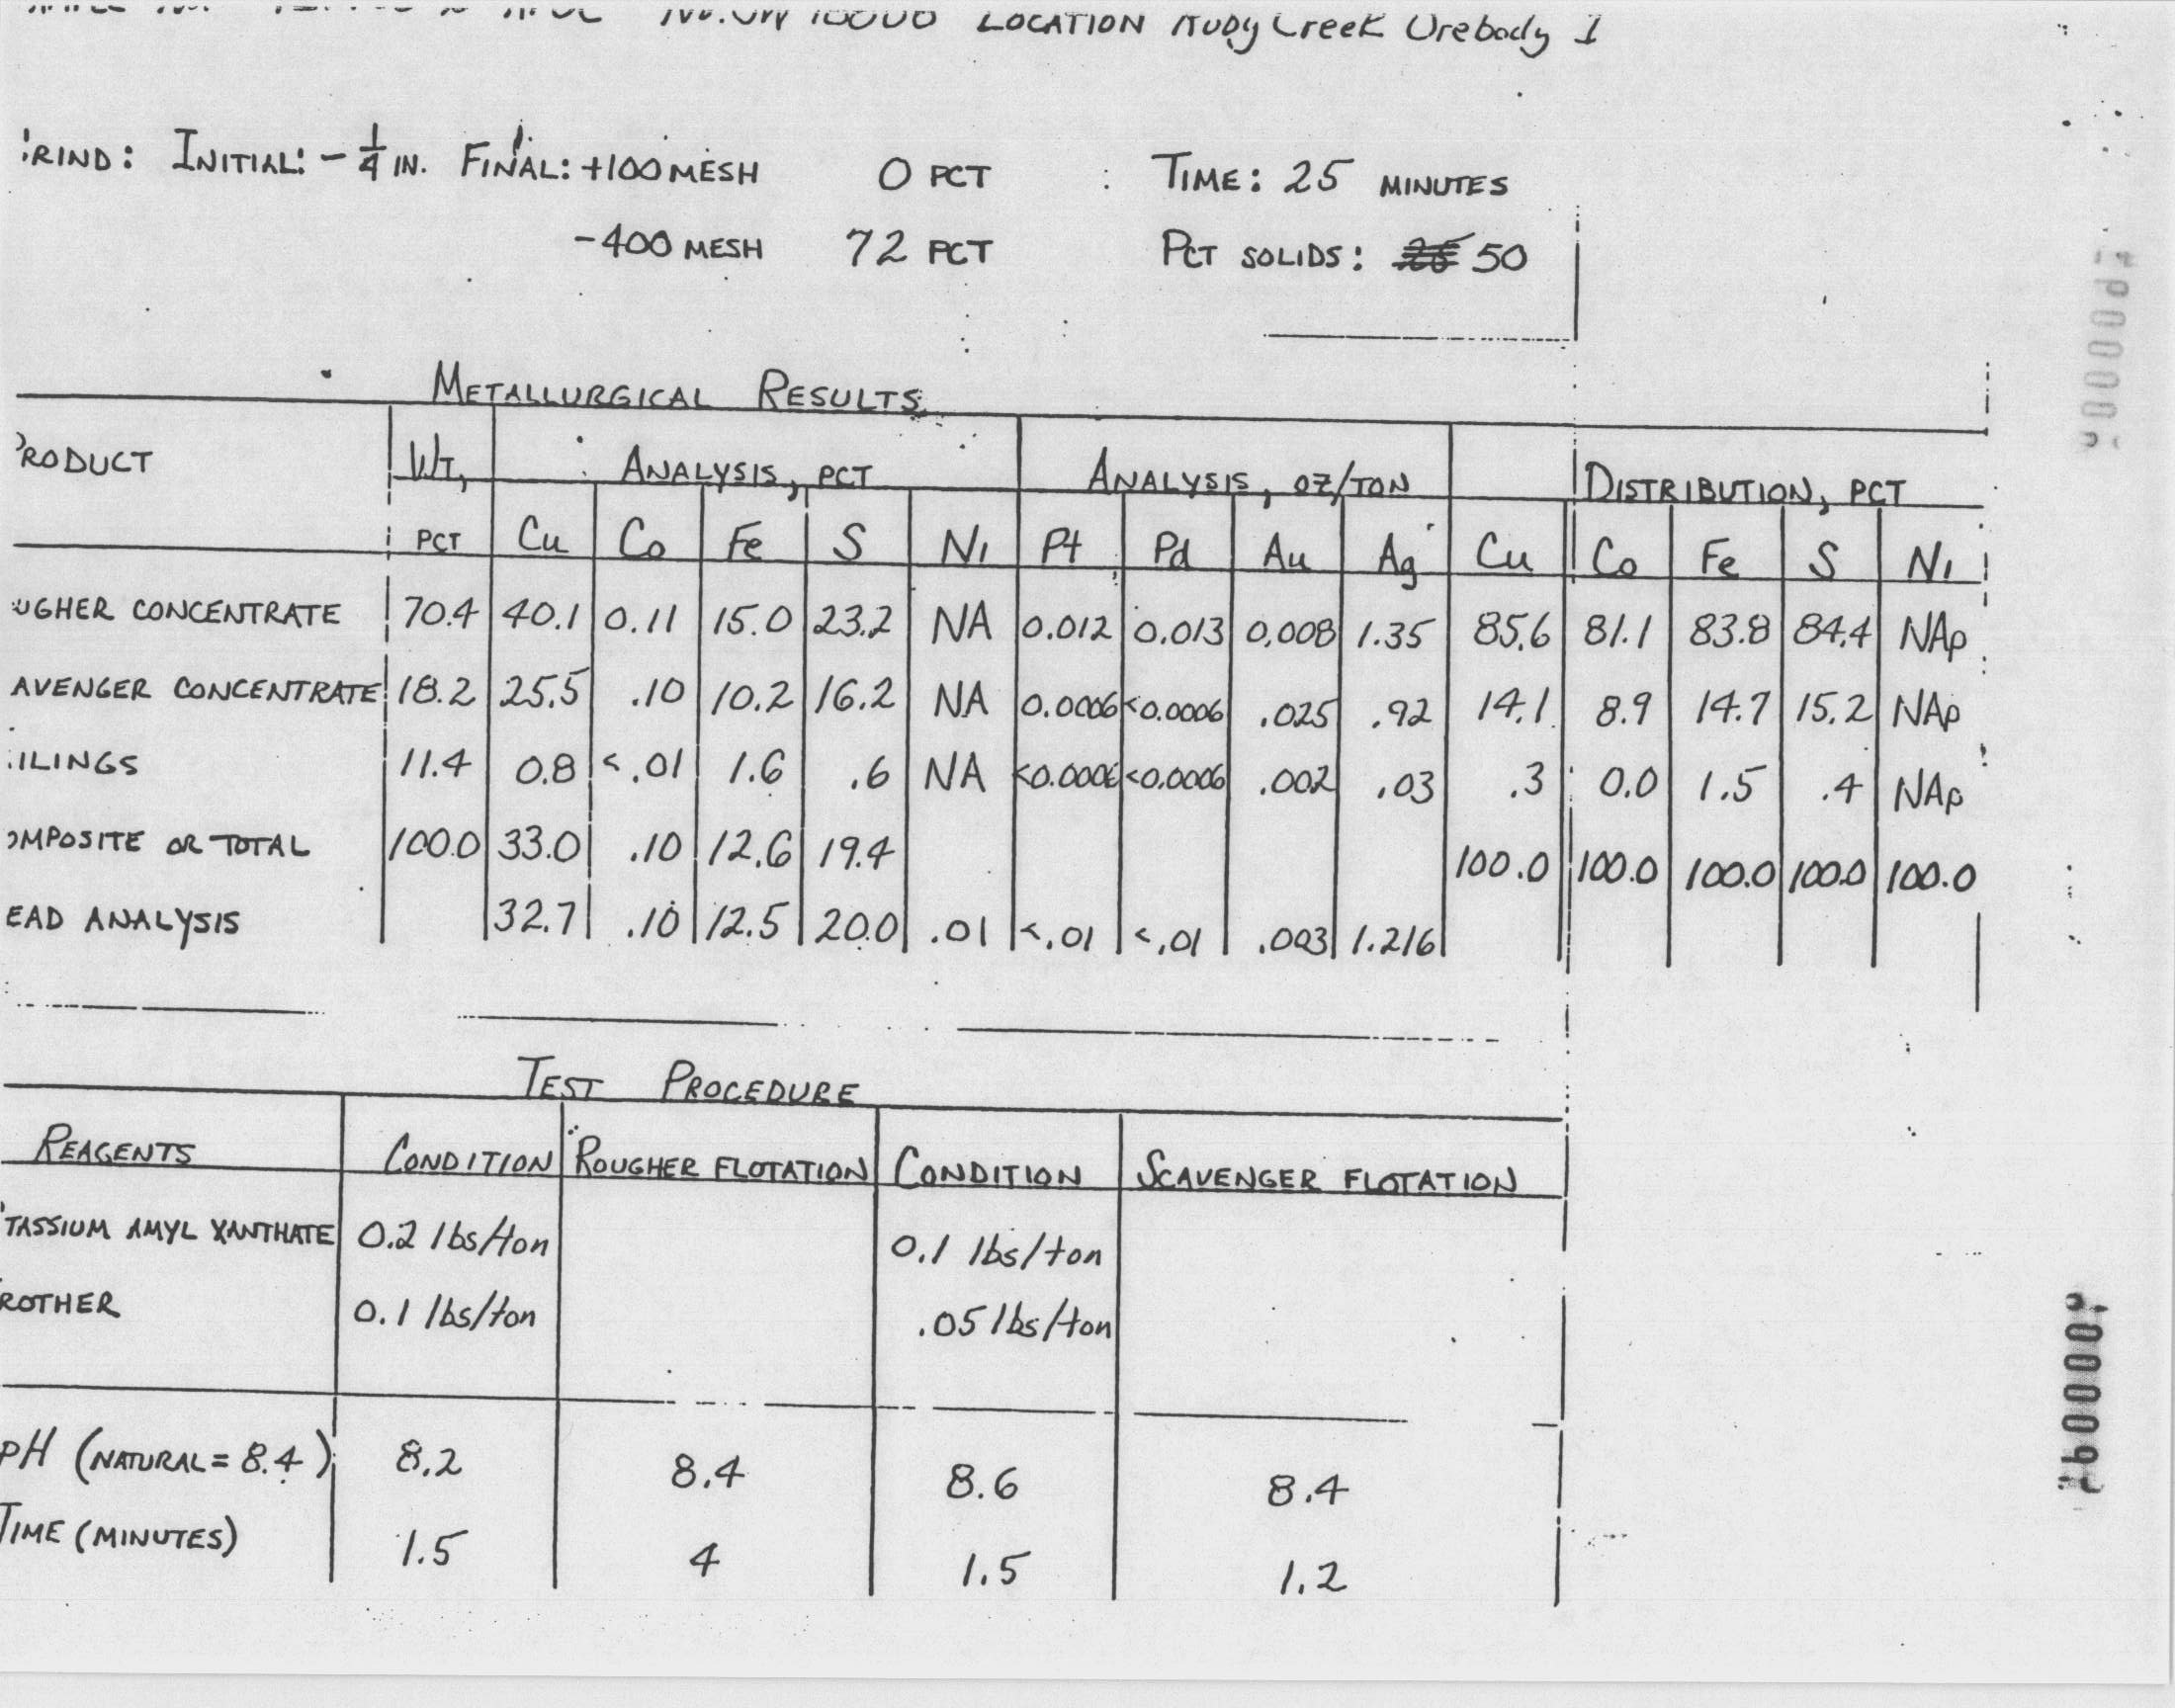 LOCATION Ruby Creek Orebody I
RIND: INITIAL: - 1/4 IN. FINAL: +100 MESH 0 PCT TIME: 25 MINUTES
-400 MESH 72 PCT PCT SOLIDS: 50
METALLURGICAL RESULTS
RODUCT WT, ANALYSIS, PCT ANALYSIS, OZ/TON DISTRIBUTION, PCT
PCT Cu Co Fe S Ni Pt Pd Au Ag Cu Co Fe S Ni
UGHER CONCENTRATE 70.4 40.1 0.11 15.0 23.2 NA 0.012 0.013 0.008 1.35 85.6 81.1 83.8 84.4 NAp
AVENGER CONCENTRATE 18.2 25.5 .10 10.2 16.2 NA 0.0006 <0.0006 .025 .92 14.1 8.9 14.7 15.2 NAp
ILINGS 11.4 0.8 <.01 1.6 .6 NA <0.0006 <0.0006 .002 .03 .3 0.0 1.5 .4 NAp
OMPOSITE OR TOTAL 100.0 33.0 .10 12.6 19.4 100.0 100.0 100.0 100.0 100.0
EAD ANALYSIS 32.7 .10 12.5 20.0 .01 <.01 <.01 .003 1.216
TEST PROCEDURE
REAGENTS CONDITION ROUGHER FLOTATION CONDITION SCAVENGER FLOTATION
TASSIUM AMYL XANTHATE 0.2 lbs/ton 0.1 lbs/ton
ROTHER 0.1 lbs/ton .05 lbs/ton
pH (NATURAL = 8.4) 8.2 8.4 8.6 8.4
TIME (MINUTES) 1.5 4 1.5 1.2